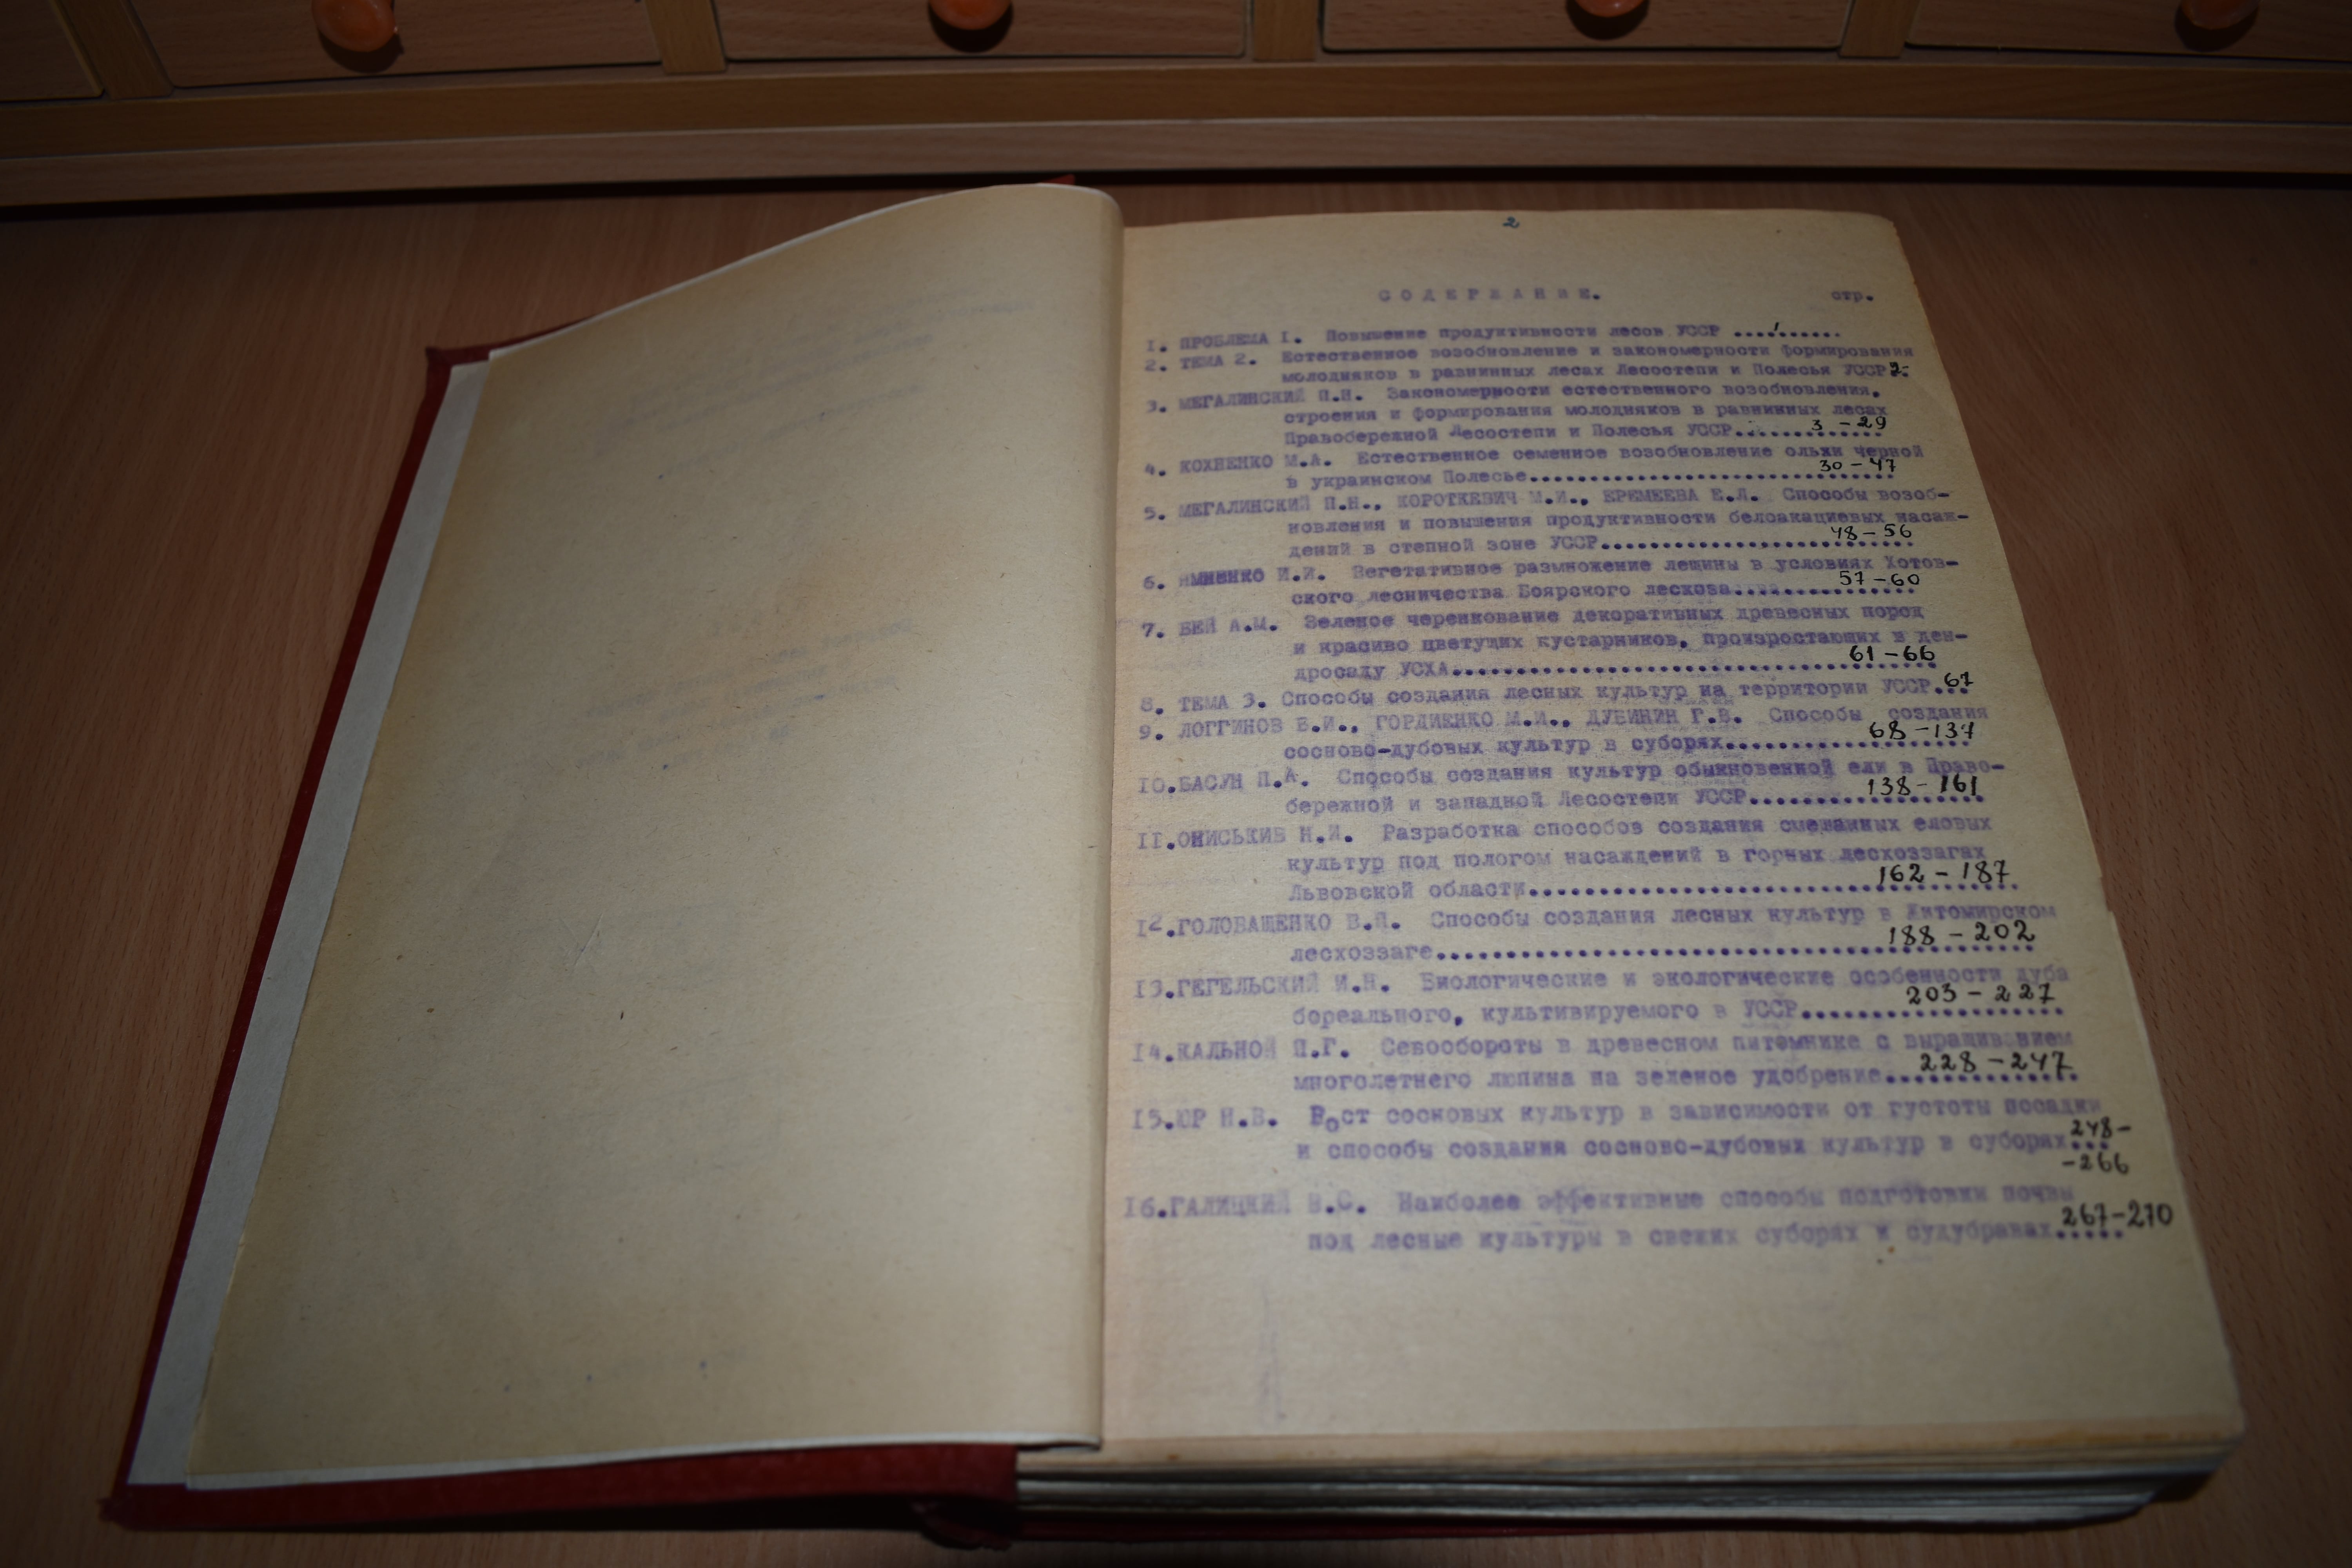 2
СОДЕРЖАНИЕ. стр.
1. ПРОБЛЕМА I. Повышение продуктивности лесов УССР ........... 1
2. ТЕМА 2. Естественное возобновление и закономерности формирования
молодняков в равнинных лесах Лесостепи и Полесья УССР 2.
3. МЕГАЛИНСКИЙ П.Н. Закономерности естественного возобновления,
строения и формирования молодняков в равнинных лесах
Правобережной Лесостепи и Полесья УССР............. 3 - 29
4. КОХНЕНКО М.А. Естественное семенное возобновление ольхи черной
в украинском Полесье............................... 30 - 47
5. МЕГАЛИНСКИЙ П.Н., КОРОТКЕВИЧ М.И., ЕРЕМЕЕВА Е.Л. Способы возоб-
новления и повышения продуктивности белоакациевых насаж-
дений в степной зоне УССР.......................... 48 - 56
6. И.И. Вегетативное размножение лещины в условиях Хотов-
ского лесничества Боярского лесхоза................ 57 - 60
7. БЕЙ А.М. Зеленое черенкование декоративных древесных пород
и красиво цветущих кустарников, произростающих в ден-
дросаду УСХА....................................... 61 - 66
8. ТЕМА 3. Способы создания лесных культур на территории УССР... 67
9. ЛОГГИНОВ Б.И., ГОРДИЕНКО М.И., ДУБИНИН Г.В. Способы создания
сосново-дубовых культур в суборях.................. 68 - 137
10. БАСУН П.А. Способы создания культур обыкновенной ели в Право-
бережной и западной Лесостепи УССР................. 138 - 161
11. ОНИСЬКИВ Н.И. Разработка способов создания смешанных еловых
культур под пологом насаждений в горных лесхоззагах
Львовской области.................................. 162 - 187
12. ГОЛОВАЩЕНКО В.П. Способы создания лесных культур в Житомирском
лесхоззаге......................................... 188 - 202
13. ГЕГЕЛЬСКИЙ И.Н. Биологические и экологические особенности дуба
бореального, культивируемого в УССР................ 203 - 227
14. КАЛЬНОЙ П.Г. Севообороты в древесном питомнике с выращиванием
многолетнего люпина на зеленое удобрение........... 228 - 247
15. ЮР Н.В. Рост сосновых культур в зависимости от густоты посадки
и способы создания сосново-дубовых культур в суборях... 248 -
- 266
16. ГАЛИЦКИЙ В.С. Наиболее эффективные способы подготовки почвы
под лесные культуры в свежих суборях и судубравах..... 267 - 270